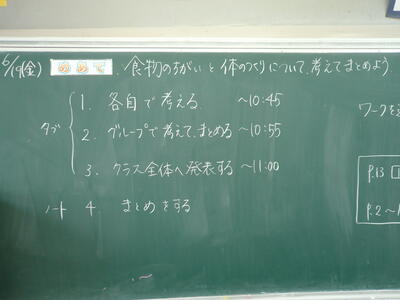 6/19(金) めあて 食物のちがいと体のつくりについて、考えてまとめよう。
タブ
1. 各自で考える ～10:45
2. グループで考えて、まとめる ～10:55
3. クラス全体へ発表する ～11:00
ノート 4 まとめをする
ワークを
P.13 1
P.2～